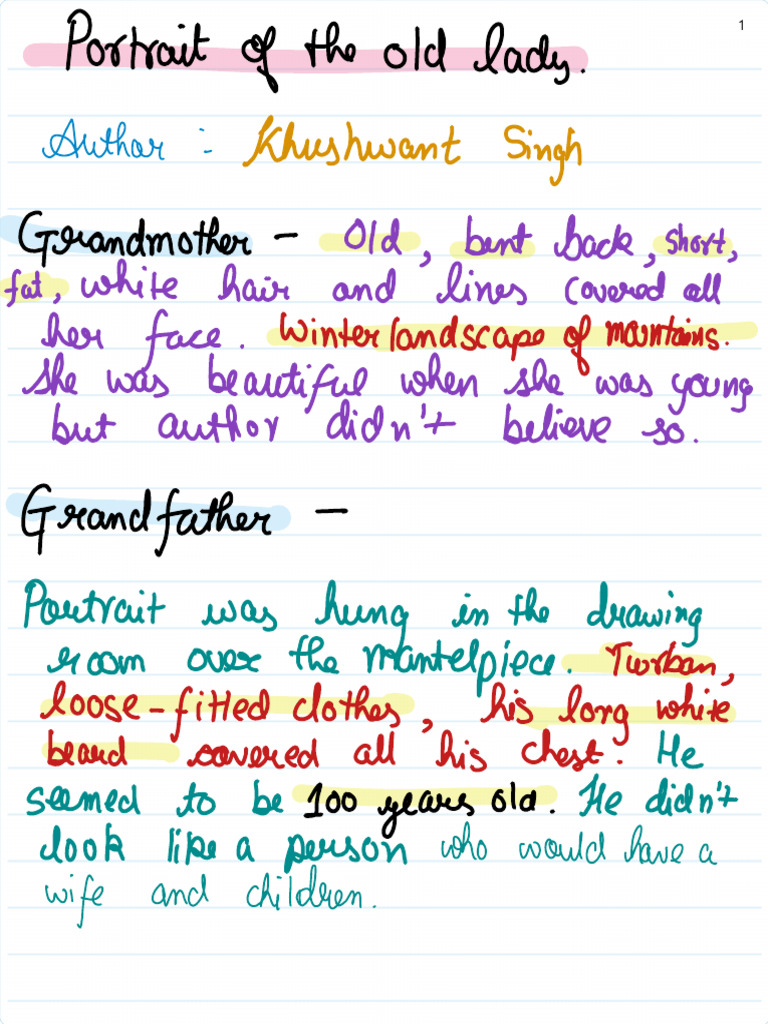 1
Portrait of the old lady.
Author :- Khushwant Singh
Grandmother - Old, bent back, short,
fat, white hair and lines covered all
her face. Winter landscape of mountains.
She was beautiful when she was young
but author didn't believe so.
Grandfather -
Portrait was hung in the drawing
room over the mantelpiece. Turban,
loose-fitted clothes, his long white
beard covered all his chest. He
seemed to be 100 years old. He didn't
look like a person who would have a
wife and children.